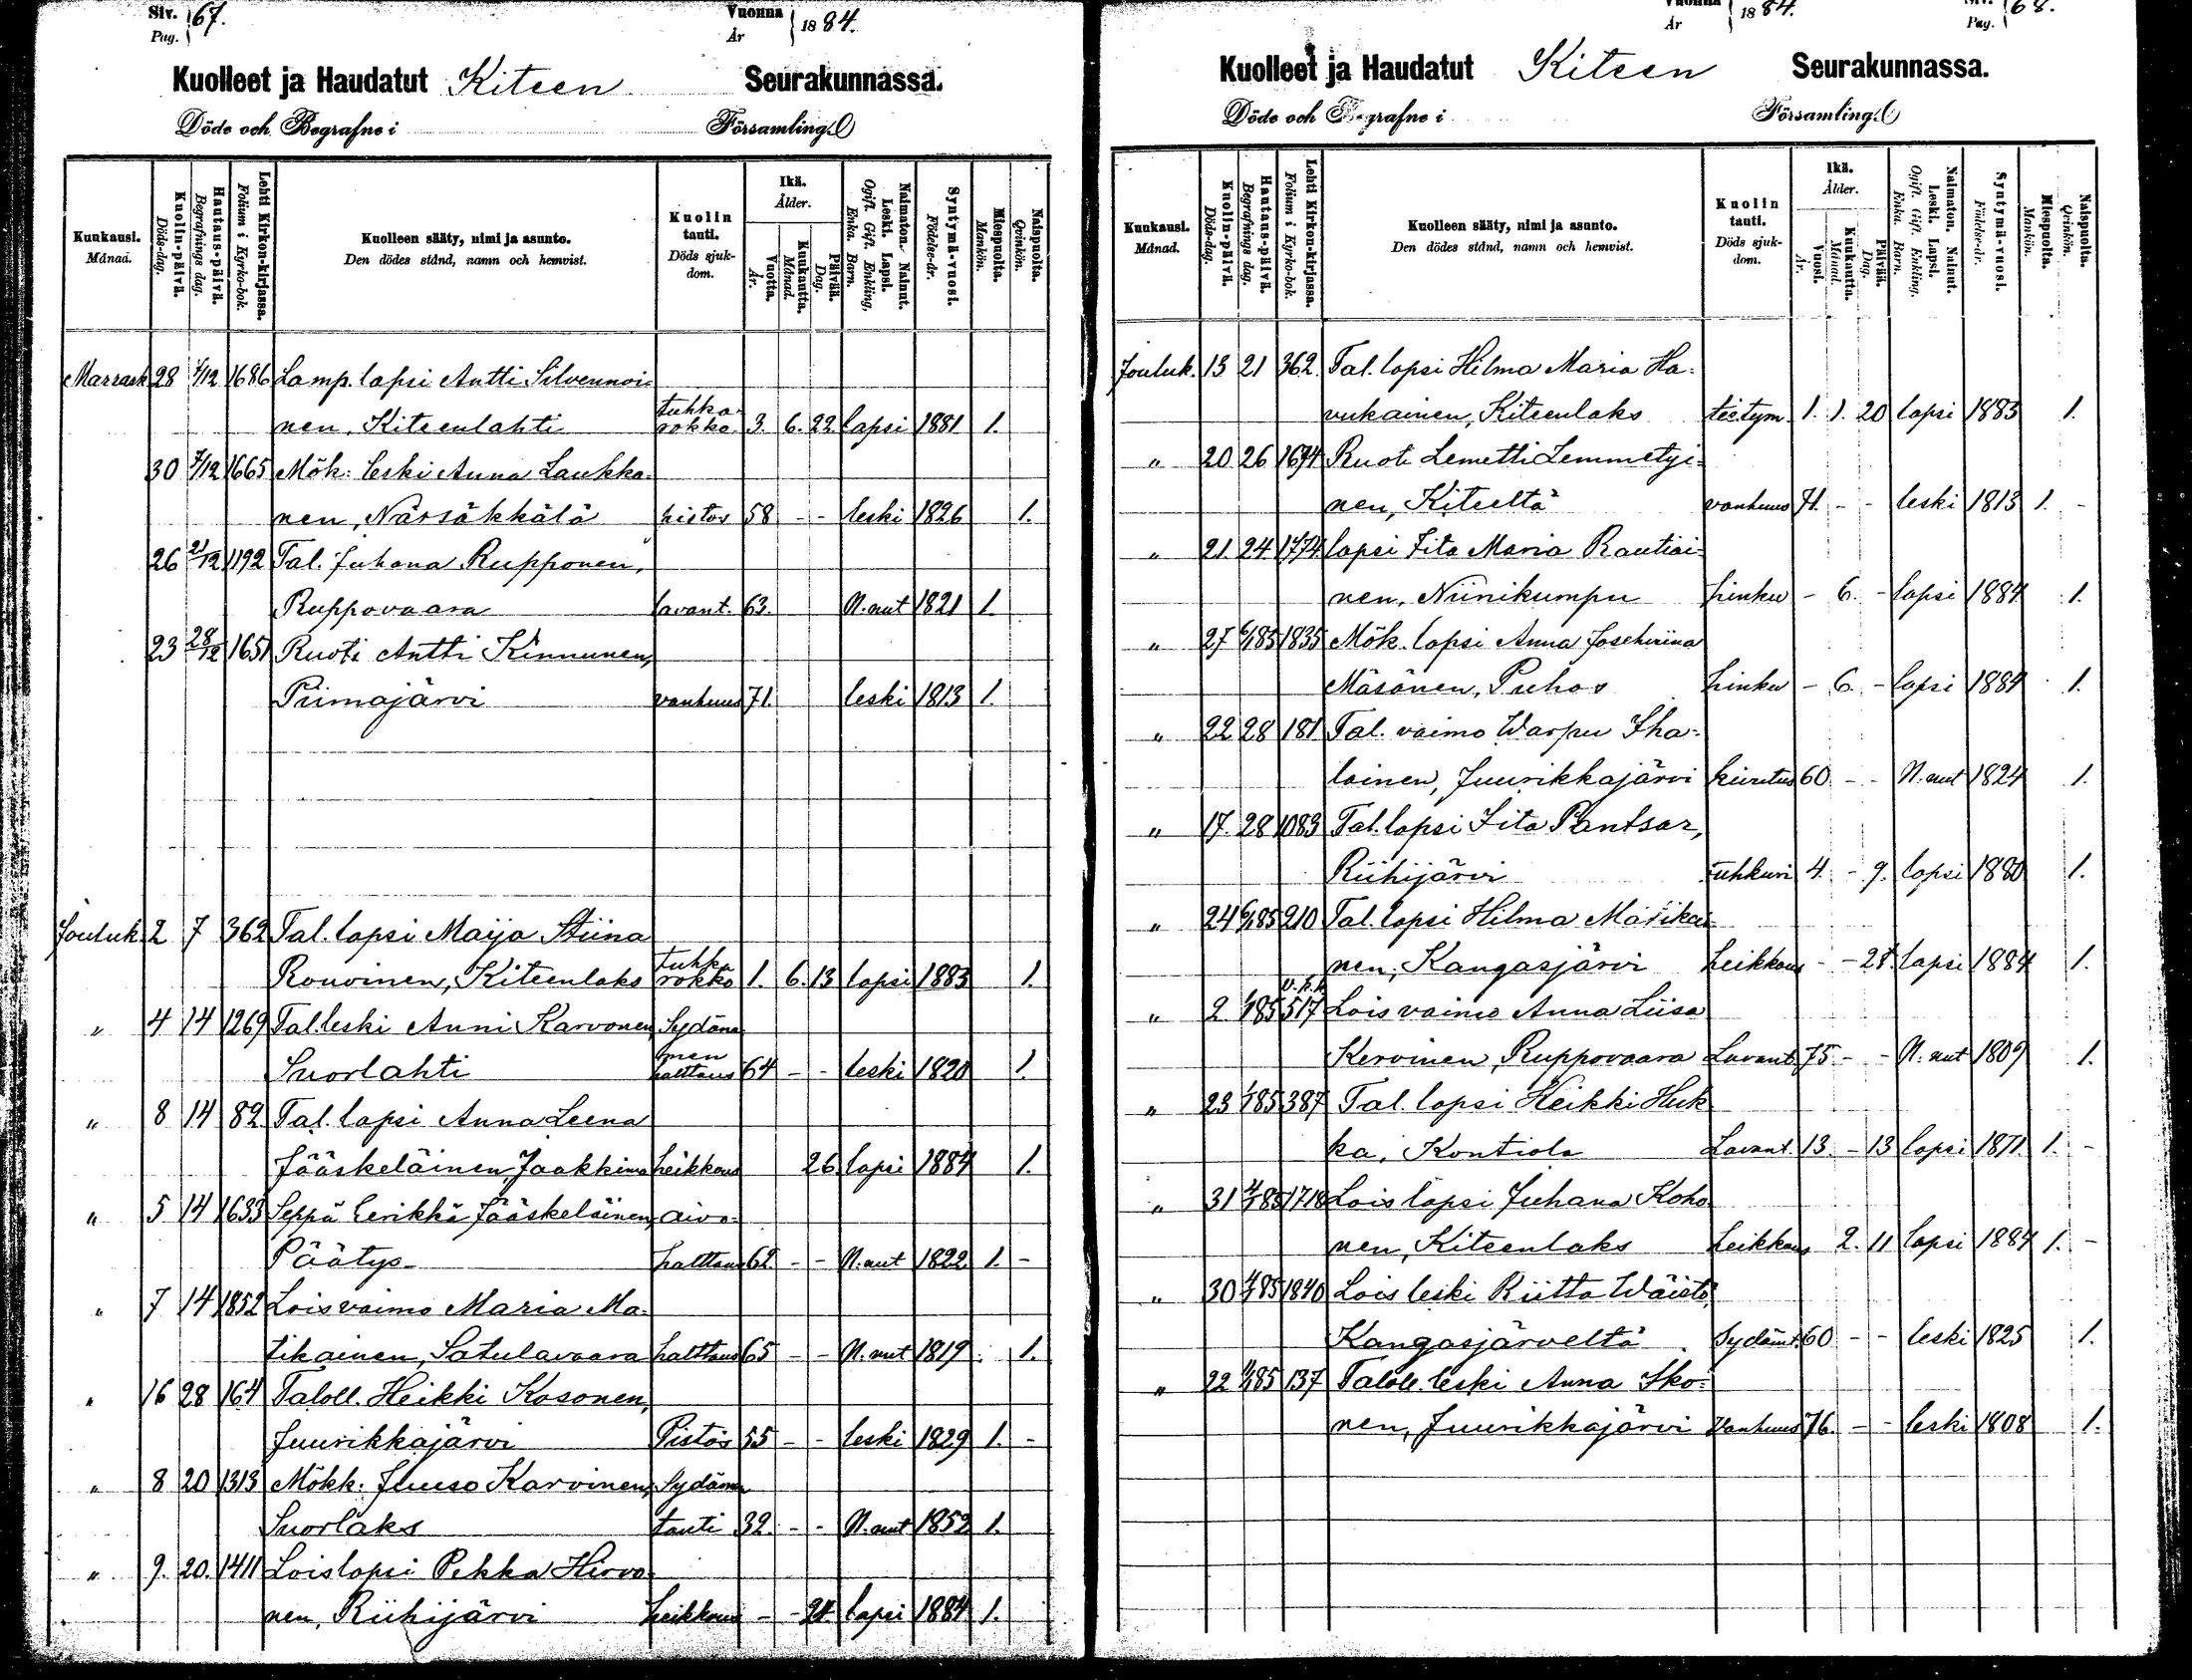 Siv. Pag. 67.
Vuonna År 1884.
Kuolleet ja Haudatut Kiteen Seurakunnassa.
Döde och Begrafne i Församling.
Kuukausi. Månad.
Kuolin-päivä. Döds-dag.
Hautaus-päivä. Begrafnings dag.
Lehti Kirkon-kirjassa. Folium i Kyrko-bok.
Kuolleen sääty, nimi ja asunto. Den dödes stånd, namn och hemvist.
Kuolin tauti. Döds sjuk-dom.
Ikä. Ålder.
Vuotta. År.
Kuukautta. Månad.
Päivää. Dag.
Naimaton. Nainut. Leski. Lapsi. Ogift. Gift. Enkling. Enka. Barn.
Syntymä-vuosi. Födelse-år.
Miespuolta. Mankön.
Naispuolta. Qvinkön.
Marrask 28 1/12 1686 Lamp. lapsi Antti Silvennoi-
nen, Kiteenlahti tuhka-rokko 3. 6. 22. lapsi 1881 1.
30 7/12 1665 Mök: leski Anna Laukka-
nen, Närsäkkälä histos 58 - - leski 1826 1.
26 21/12 1192 Tal. Juhana Rupponen,
Ruppovaara lavant. 63. N.nut 1821 1.
23 28/12 1651 Ruoti Antti Kinnunen,
Piimajärvi vanhuus 71. leski 1813 1.
Jouluk. 2 7 362 Tal. lapsi Maija Stiina
Rouvinen, Kiteenlaks tuhka rokko 1. 6. 13 lapsi 1883 1.
" 4 14 1269 Tal. leski Anni Karvonen, Sydäme
Suorlahti men halttaus 64 - - leski 1820 1.
" 8 14 82 Tal. lapsi Anna Leena
Jääskeläinen, Jaakkima heikkous 26. lapsi 1884 1.
" 5 14 1633 Seppä Eerikki Jääskeläinen, aivo-
Päätys halttaus 62. - - N.nut 1822 1. -
" 7 14 1852 Loisvaimo Maria Ma-
tikainen, Satulavaara halttaus 65 - - N.nut 1819 1.
" 16 28 164 Taloll. Heikki Kosonen,
Juurikkajärvi Pistos 55 - - leski 1829 1. -
" 8 20 1313 Mökk: Juuso Karvinen, Sydäme
Suorlaks tauti 32. - - N.nut 1852 1.
" 9. 20. 1411 Loislapsi Pekka Hirvo-
nen, Riihijärvi heikkous - - 24. lapsi 1884 1.
Vuonna År 1884.
Siv. Pag. 68.
Kuolleet ja Haudatut Kiteen Seurakunnassa.
Döde och Begrafne i Församling.
Kuukausi. Månad.
Kuolin-päivä. Döds-dag.
Hautaus-päivä. Begrafnings dag.
Lehti Kirkon-kirjassa. Folium i Kyrko-bok.
Kuolleen sääty, nimi ja asunto. Den dödes stånd, namn och hemvist.
Kuolin tauti. Döds sjuk-dom.
Ikä. Ålder.
Vuosi. År.
Kuukautta. Månad.
Päivää. Dag.
Naimaton. Nainut. Leski. Lapsi. Ogift. Gift. Enkling. Enka. Barn.
Syntymä-vuosi. Födelse-år.
Miespuolta. Mankön.
Naispuolta. Qvinkön.
Jouluk. 13 21 362. Tal. lapsi Hilma Maria Ha-
vukainen, Kiteenlaks tietym. 1. 1. 20 lapsi 1883 1.
" 20 26 1694 Ruoti Lemetti Lemmetyi-
nen, Kiteeltä vanhuus 71. - - leski 1813 1. -
" 21 24 1774 lapsi Iita Maria Rautiai-
nen, Niinikumpu hinku - 6. - lapsi 1884 1.
" 27 6/1 85 1835 Mök. lapsi Anna Josehviina
Mäsönen, Puhos hinku - 6. - lapsi 1884 1.
" 22 28 181 Tal. vaimo Warpu Iha-
lainen, Juurikkajärvi kuvetus 60. - - N.nut 1824 1.
" 17. 28 1083 Tal. lapsi Iita Pantsar,
Riihijärvi tuhkuri 4. - 9. lapsi 1880 1.
" 24 6/1 85 210 Tal. lapsi Hilma Marikai-
nen, Kangasjärvi heikkous - - 28. lapsi 1884 1.
" 2 1/1 85 v.k.k 517 Lois vaimo Anna Liisa
Kervinen, Ruppovaara Lavant. 75 - - N.nut 1809 1.
" 23 1/1 85 387 Tal. lapsi Heikki Huk
ka, Kontiola Lavant. 13. - 13 lapsi 1871. 1. -
" 31 4/1 85 1718 Lois lapsi Juhana Koho
nen, Kiteenlaks heikkous 2. 11 lapsi 1884 1. -
" 30 4/1 85 1840 Lois leski Riitta Wäistö,
Kangasjärveltä Sydämt. 60 - - leski 1825 1.
" 22 11/1 85 137 Taloll. leski Anna Iko-
nen, Juurikkajärvi Vanhuus 76. - - leski 1808 1.